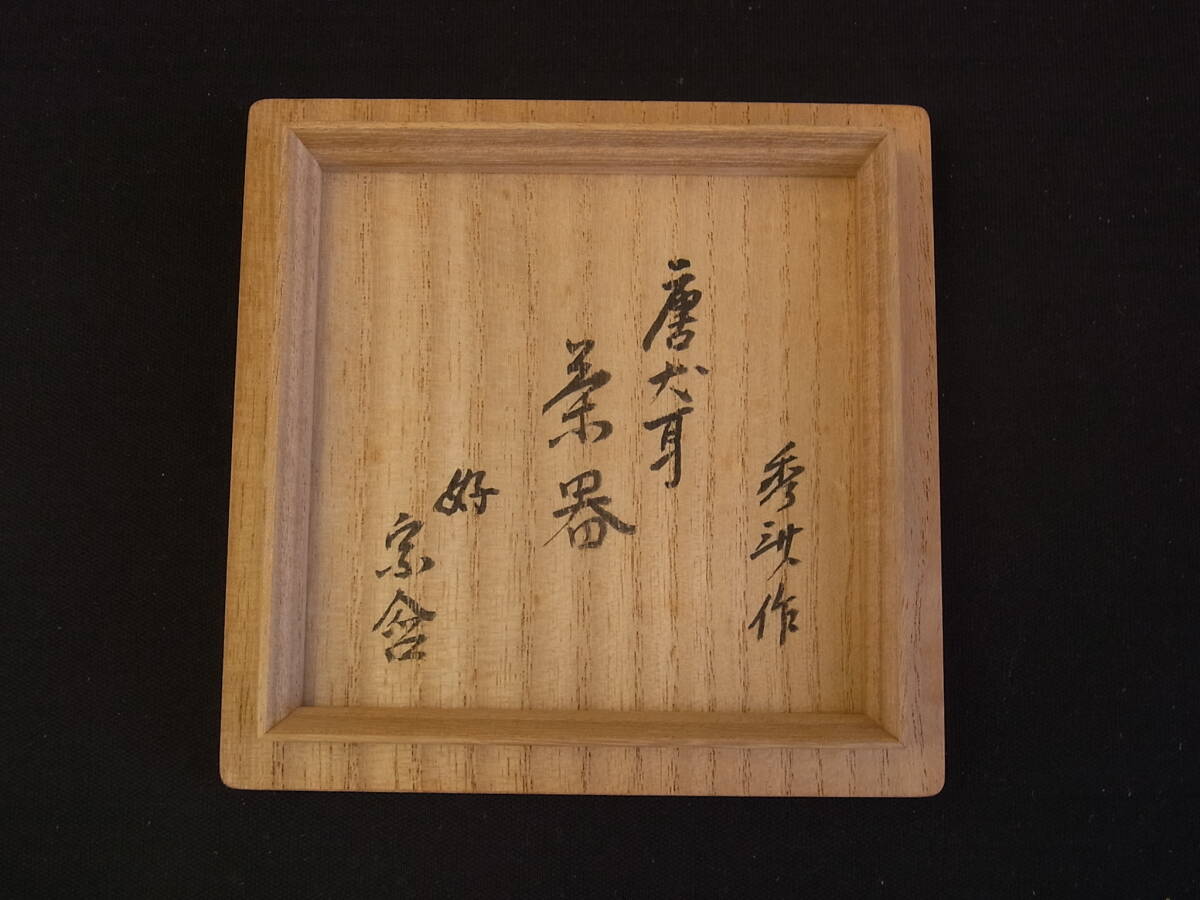 秀作
唐犬耳
茶器
好
宗含